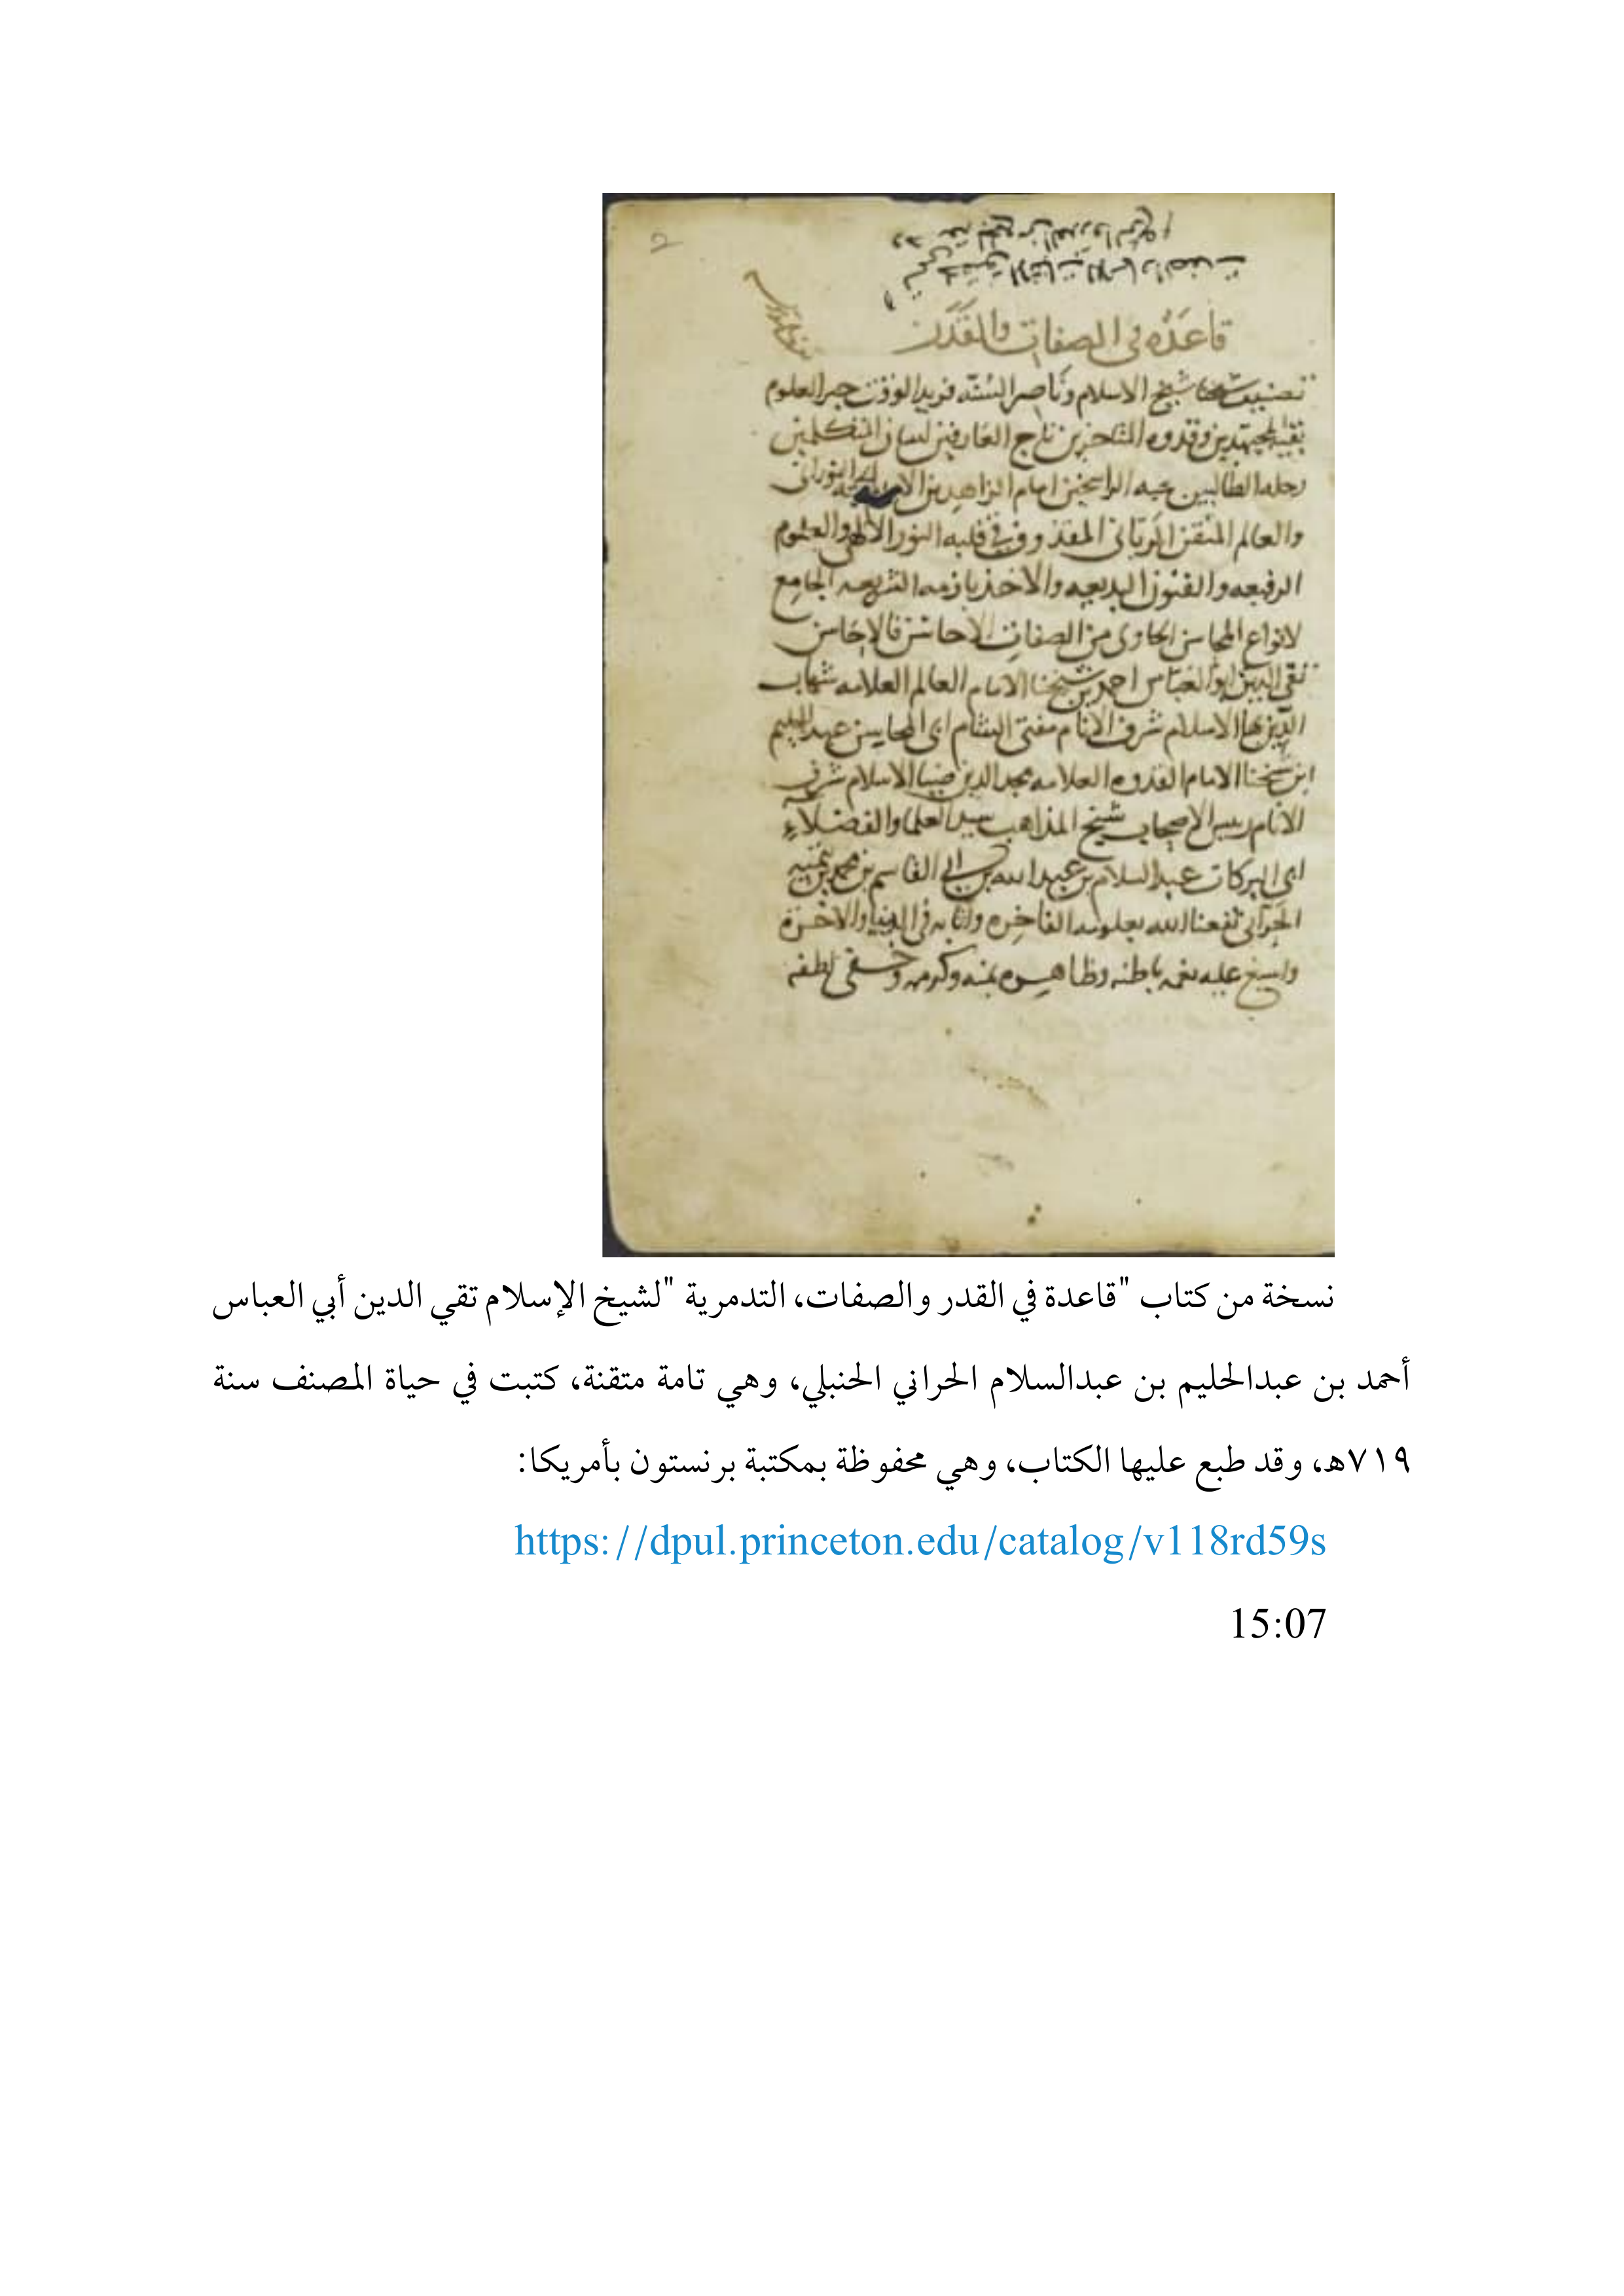 قاعده في الصفات والقدر
تصنيف شيخنا شيخ الاسلام وناصر السنه فريد الوقت بحر العلوم
بقيه المجتهدين وقدوه المتاخرين تاج العارفين لسان المتكلمين
رحله الطالبين الراسخين امام الزاهدين النوراني
والعالم المتقن الرباني المقذوف في قلبه النور الالهي والعلوم
الرفيعه والفنون البديعه والاخذ بازمه الشريعه الجامع
لانواع المحاسن الحاوي من الصفات الاحاسن فالاحاسن
تقي الدين ابو العباس احمد بن شيخنا الامام العالم العلامه شهاب
الدين بها الاسلام شرف الانام مفتي الشام ابي المحاسن عبد الحليم
ابن شيخنا الامام القدوه العلامه مجد الدين ضيا الاسلام شرف
الانام ريس الاصحاب شيخ المذاهب سيد العلما والفضلاء
ابي البركات عبد السلام بن عبد الله بن ابي القاسم بن محمد بن تيميه
الحراني نفعنا الله بعلومه الفاخره واثابه في الدنيا والاخرة
واسبغ عليه نعمه باطنه وظاهره بمنه وكرمه وخفي لطفه
نسخة من كتاب "قاعدة في القدر والصفات، التدمرية "لشيخ الإسلام تقي الدين أبي العباس
أحمد بن عبدالحليم بن عبدالسلام الحراني الحنبلي، وهي تامة متقنة، كتبت في حياة المصنف سنة
٧١٩هـ، وقد طبع عليها الكتاب، وهي محفوظة بمكتبة برنستون بأمريكا:
https://dpul.princeton.edu/catalog/v118rd59s
15:07